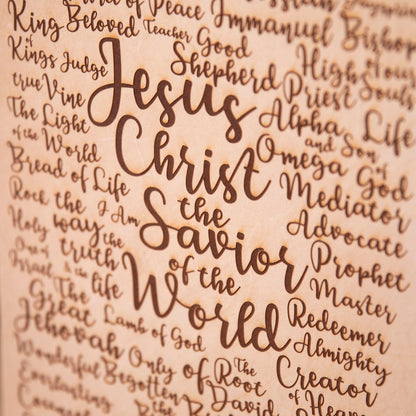 of Peace Immanuel Bishop
King of Kings
Beloved
Teacher
Good Shepherd
Judge
High Priest
true Vine
The Light of the World
Bread of Life
Rock
I Am
the way the truth & the life
Holy One of Israel
Jesus
Christ
the
Savior
of the
World
Alpha and Omega
Life
Son of God
Mediator
Advocate
Prophet
Master
Redeemer
Almighty
Creator
of
The Great Jehovah
Lamb of God
Wonderful
Only Begotten
The Root of David
Souls